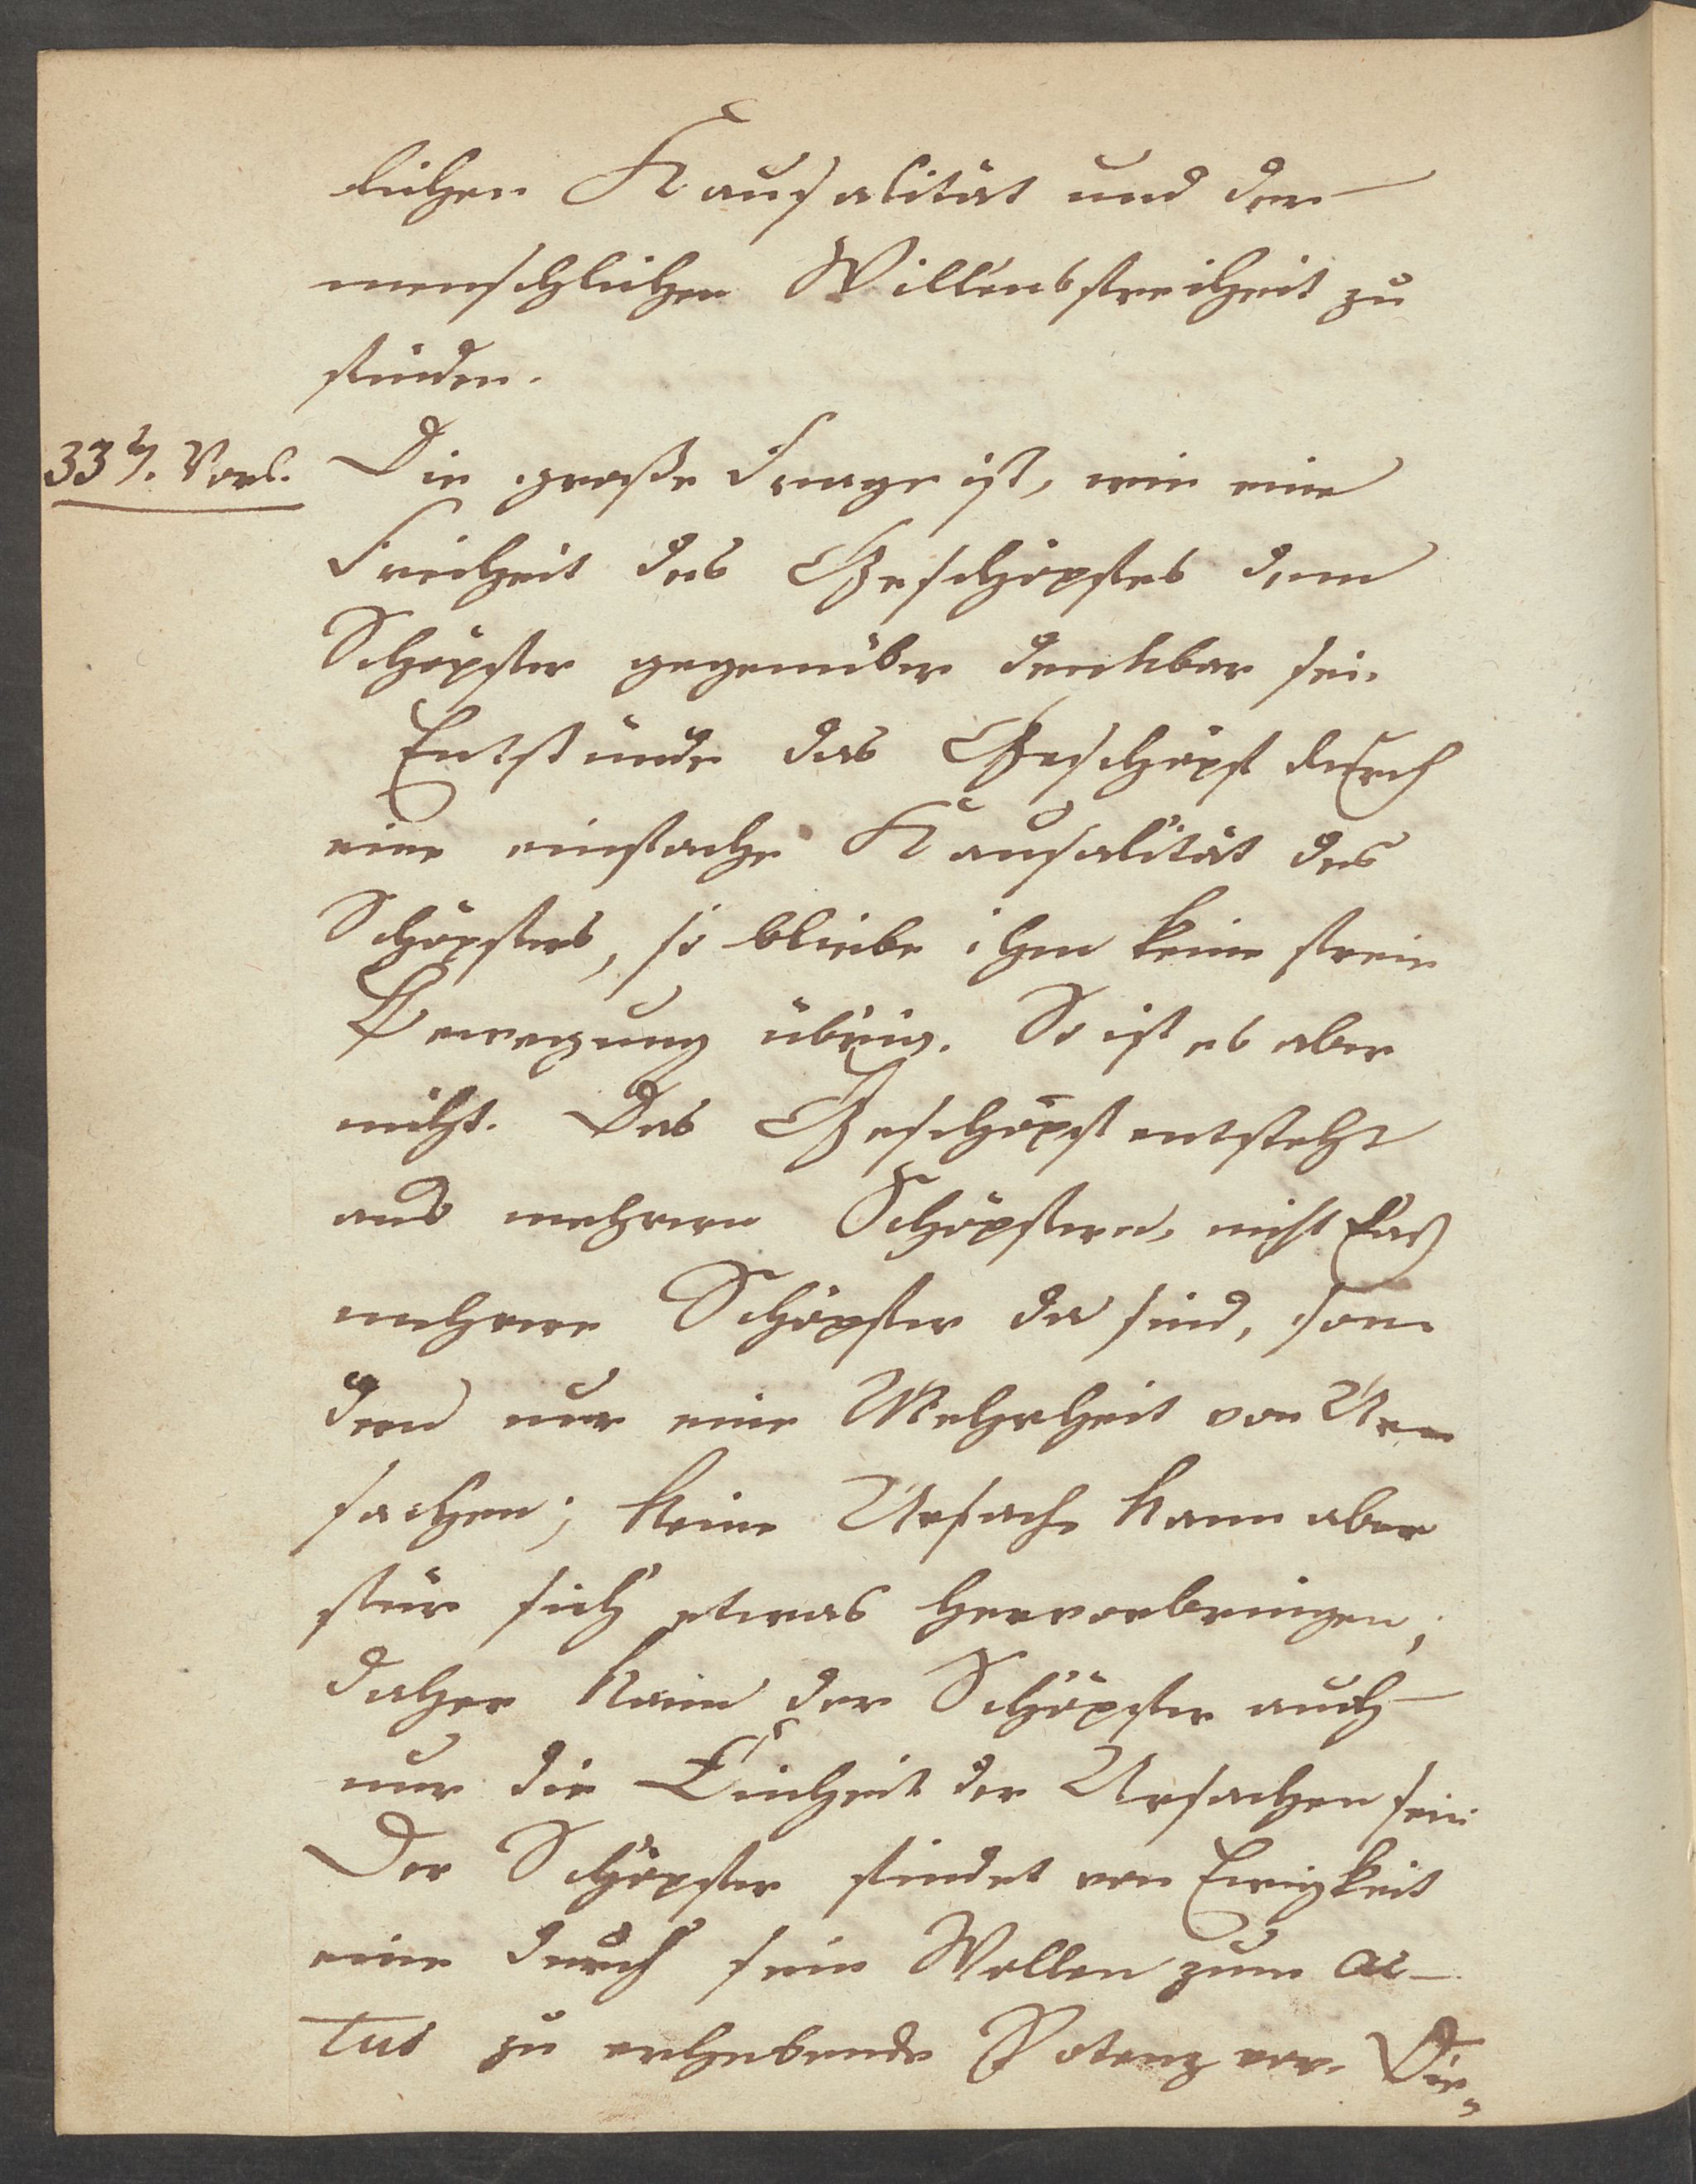 lichen Kausalität und der
menschlichen Willensfreiheit zu
finden.
33te. Vorl.
Die große Frage ist, wie eine
Freiheit des Geschöpfes dem
Schöpfer gegenüber denkbar sei.
Entstünde das Geschöpf durch
eine einfache Kausalität des
Schöpfers, so bliebe ihm keine freie
Bewegung übrig. So ist es aber
nicht. Das Geschöpf entsteht
aus mehrern Schöpfern, nicht daß
mehrere Schöpfer da sind, son-
dern nur eine Mehrheit von Ur-
sachen; keine Ursache kann aber
für sich etwas hervorbringen;
daher kann der Schöpfer auch
nur die Einheit der Ursachen sein.
Der Schöpfer findet von Ewigkeit
eine durch sein Wollen zum ac-
tus zu erhebende Potenz vor. Die-